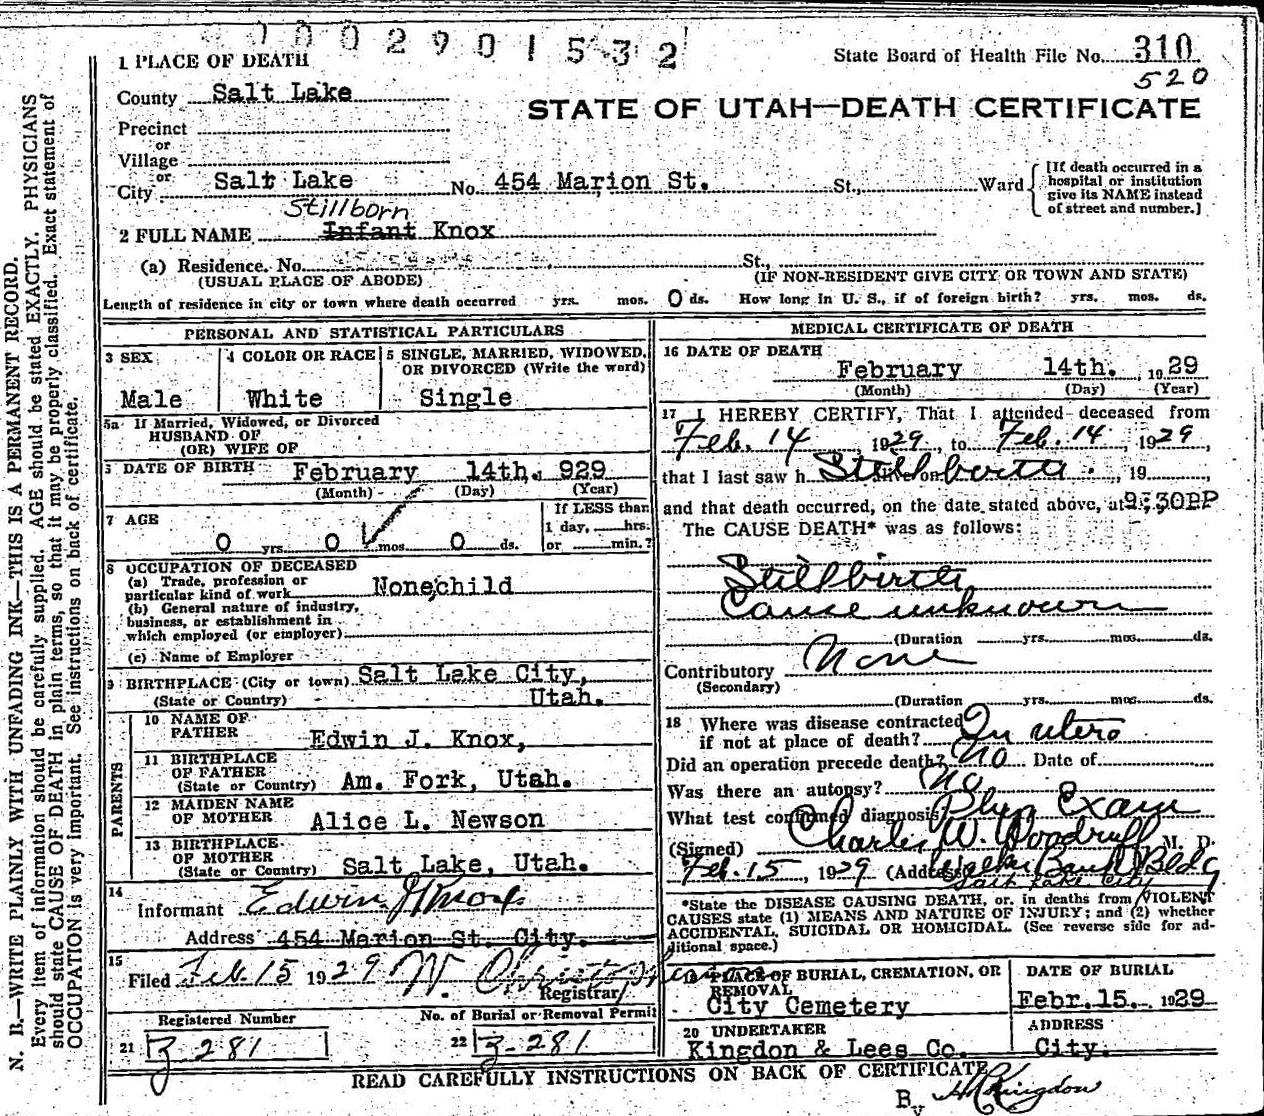 1002901532
State Board of Health File No. 310
520
1 PLACE OF DEATH
County Salt Lake
STATE OF UTAH—DEATH CERTIFICATE
Precinct
or
Village
or
City Salt Lake No. 454 Marion St. St., Ward
[If death occurred in a
hospital or institution
give its NAME instead
of street and number.]
Stillborn
2 FULL NAME Infant Knox
(a) Residence. No. St.,
(USUAL PLACE OF ABODE) (IF NON-RESIDENT GIVE CITY OR TOWN AND STATE)
Length of residence in city or town where death occurred yrs. mos. 0 ds. How long in U. S., if of foreign birth? yrs. mos. ds.
PERSONAL AND STATISTICAL PARTICULARS
3 SEX
Male
4 COLOR OR RACE
White
5 SINGLE, MARRIED, WIDOWED,
OR DIVORCED (Write the word)
Single
5a If Married, Widowed, or Divorced
HUSBAND OF
(OR) WIFE OF
DATE OF BIRTH February 14th. 929
(Month) (Day) (Year)
7 AGE
0 yrs. 0 mos. 0 ds.
If LESS than
1 day, hrs.
or min.?
8 OCCUPATION OF DECEASED
(a) Trade, profession or
particular kind of work None;child
(b) General nature of industry,
business, or establishment in
which employed (or employer)
(c) Name of Employer
9 BIRTHPLACE (City or town) Salt Lake City,
(State or Country) Utah.
PARENTS
10 NAME OF
FATHER Edwin J. Knox,
11 BIRTHPLACE
OF FATHER
(State or Country) Am. Fork, Utah.
12 MAIDEN NAME
OF MOTHER Alice L. Newson
13 BIRTHPLACE
OF MOTHER
(State or Country) Salt Lake, Utah.
14
Informant Edwin J Knox
Address 454 Marion St. City.
15
Filed Feb. 15 1929 W. Christopherson
Registrar
Registered Number
21 Z 281
No. of Burial or Removal Permit
22 Z-281
MEDICAL CERTIFICATE OF DEATH
16 DATE OF DEATH
February 14th. , 1929
(Month) (Day) (Year)
17 I HEREBY CERTIFY, That I attended deceased from
Feb. 14 1929, to Feb. 14, 1929,
that I last saw h alive on Stillbirth. , 19
and that death occurred, on the date stated above, at 9:30PP
The CAUSE DEATH* was as follows:
Stillbirth
Cause unknown
(Duration yrs. mos. ds.
Contributory None
(Secondary)
(Duration yrs. mos. ds.
18 Where was disease contracted
if not at place of death? In utero
Did an operation precede death? No Date of
Was there an autopsy? No
What test confirmed diagnosis Phys Exam
(Signed) Charles W. Woodruff, M. D.
Feb. 15, 1929 (Address) Walker Bank Bldg
Salt Lake City
*State the DISEASE CAUSING DEATH, or, in deaths from VIOLENT
CAUSES state (1) MEANS AND NATURE OF INJURY; and (2) whether
ACCIDENTAL, SUICIDAL OR HOMICIDAL. (See reverse side for ad-
ditional space.)
19 PLACE OF BURIAL, CREMATION, OR
REMOVAL
City Cemetery
DATE OF BURIAL
Febr.15. 1929
20 UNDERTAKER
Kingdon & Lees Co.
ADDRESS
City.
READ CAREFULLY INSTRUCTIONS ON BACK OF CERTIFICATE
By Kingdon
N. B.—WRITE PLAINLY WITH UNFADING INK—THIS IS A PERMANENT RECORD.
Every item of information should be carefully supplied. AGE should be stated EXACTLY. PHYSICIANS
should state CAUSE OF DEATH in plain terms, so that it may be properly classified. Exact statement of
OCCUPATION is very important. See instructions on back of certificate.